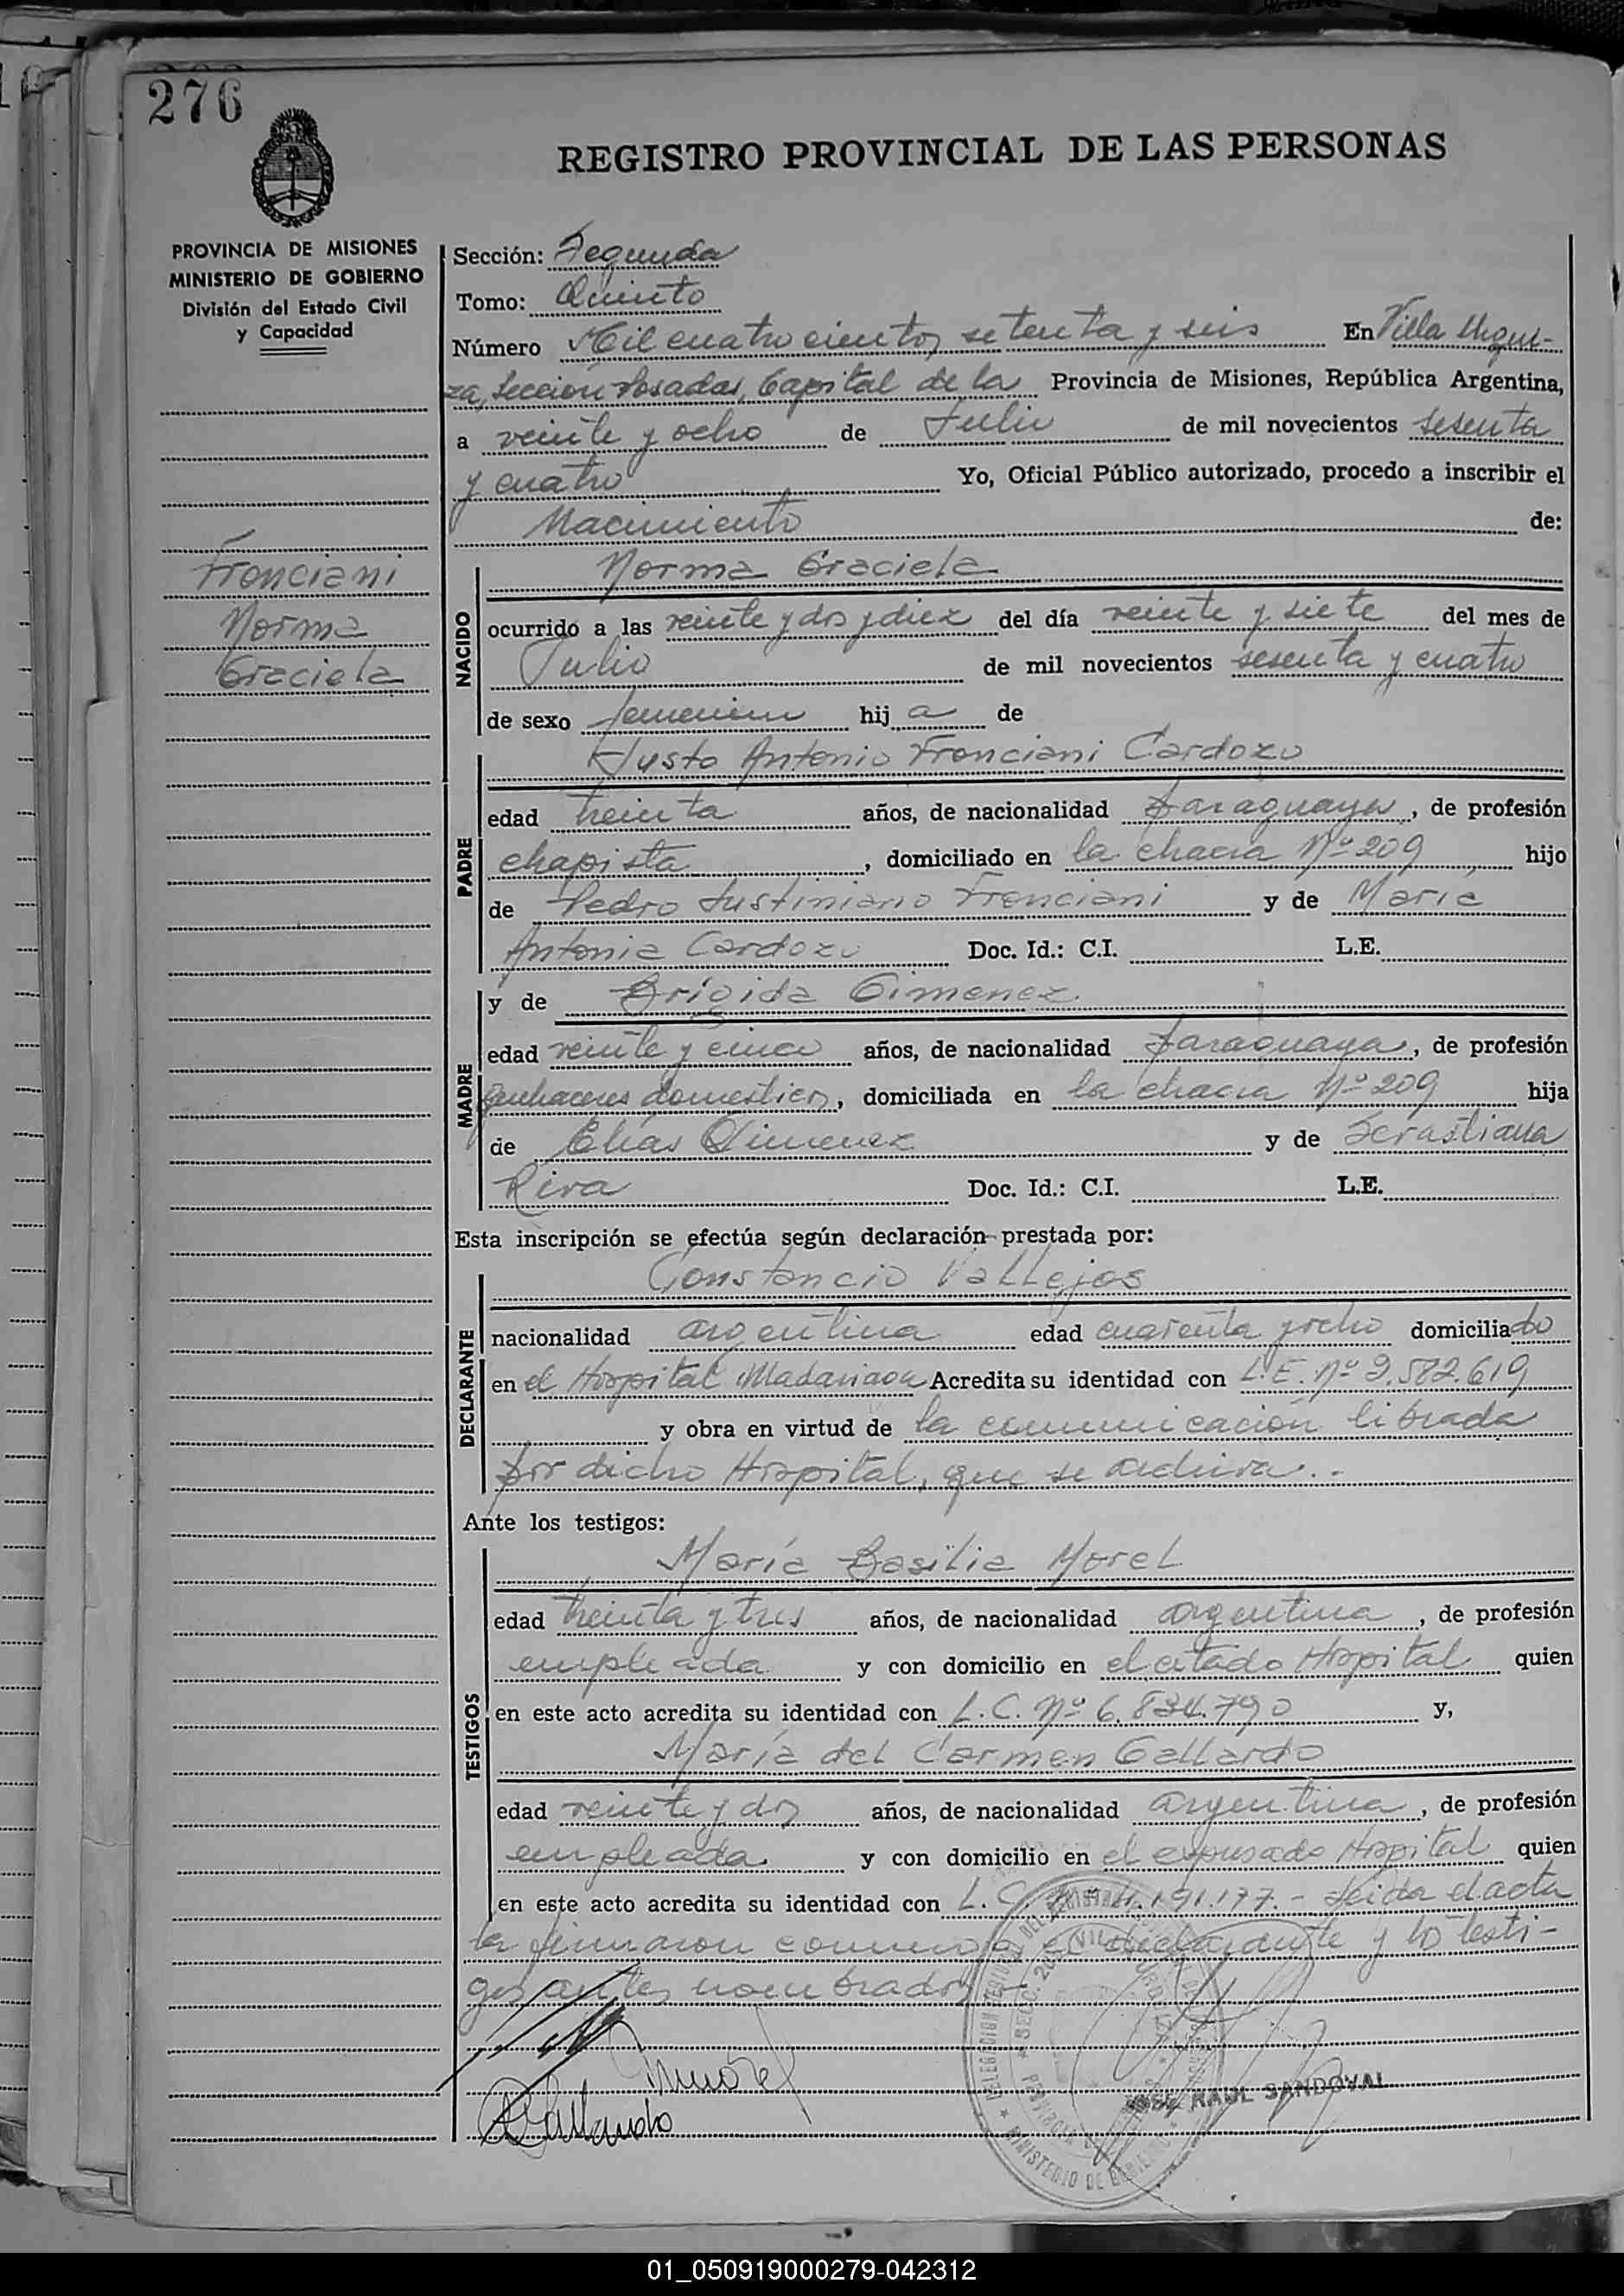 276
REGISTRO PROVINCIAL DE LAS PERSONAS
PROVINCIA DE MISIONES
MINISTERIO DE GOBIERNO
División del Estado Civil
y Capacidad
Franciani
Norma
Graciela
Sección: Segunda
Tomo: Quinto
Número Mil cuatrocientos setenta y seis En Villa Urqui-
za, Sección Posadas, Capital de la Provincia de Misiones, República Argentina,
a veinte y ocho de Julio de mil novecientos sesenta
y cuatro Yo, Oficial Público autorizado, procedo a inscribir el
Nacimiento de:
NACIDO
Norma Graciela
ocurrido a las veinte y dos y diez del día veinte y siete del mes de
Julio de mil novecientos sesenta y cuatro
de sexo femenino hij a de
PADRE
Justo Antonio Franciani Cardozo
edad treinta años, de nacionalidad paraguaya, de profesión
chapista, domiciliado en la chacra Nº 209 hijo
de Pedro Justiniano Franciani y de María
Antonia Cardozo Doc. Id.: C.I. L.E.
MADRE
y de Brígida Gimenez
edad veinte y cinco años, de nacionalidad paraguaya, de profesión
quehaceres domesticos, domiciliada en la chacra Nº 209 hija
de Elías Gimenez y de
Riva Doc. Id.: C.I. L.E.
Esta inscripción se efectúa según declaración prestada por:
DECLARANTE
Constancio Vallejos
nacionalidad argentina edad cuarenta y ocho domiciliado
en el Hospital Madariaga Acredita su identidad con L.E. Nº 2.582.619
y obra en virtud de la comunicación librada
por dicho Hospital, que se archiva.-
Ante los testigos:
TESTIGOS
María Basilia Morel
edad treinta y tres años, de nacionalidad argentina, de profesión
empleada y con domicilio en el citado Hospital quien
en este acto acredita su identidad con L.C. Nº 6.834.790 y,
María del Carmen Gallardo
edad veinte y dos años, de nacionalidad argentina, de profesión
empleada y con domicilio en el expresado Hospital quien
en este acto acredita su identidad con L.C. Nº 4.191.177.- Leida el acta
la firmaron conmigo el declarante y los testi-
gos antes nombrados
Morel
Gallardo
JOSE RAUL SANDOVAL
01_050919000279-042312